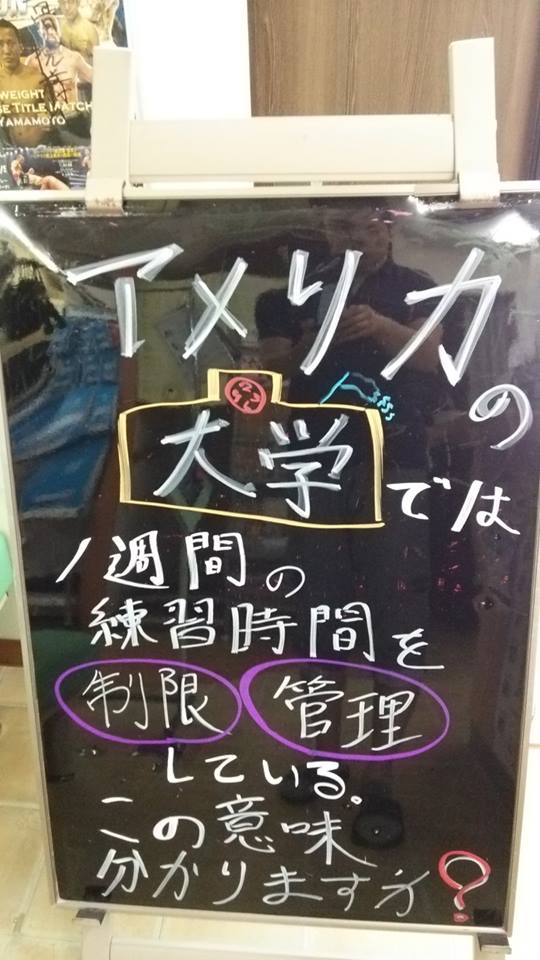 WEIGHT
SE TITLE MATCH
YAMAMOTO
アメリカの
大学では
1週間の
練習時間を
制限 管理
している。
この意味
分かりますか?